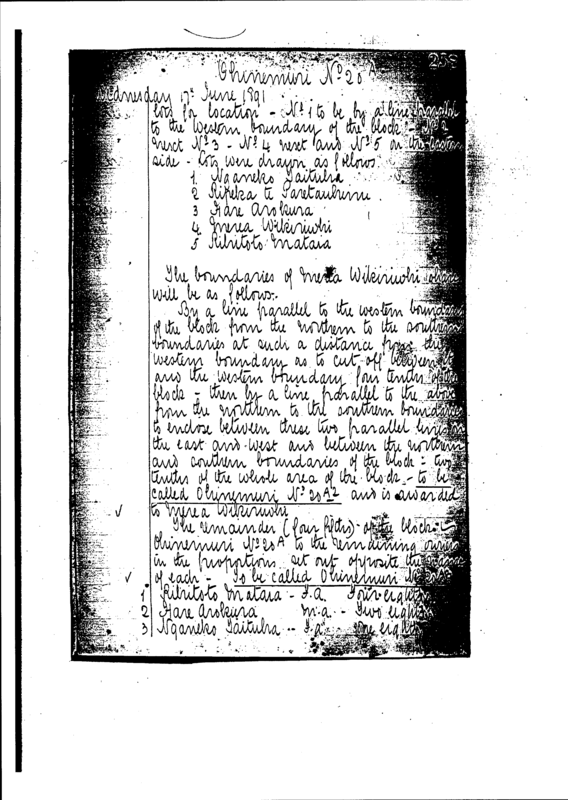 Ohinemuri No 20A 238
Wednesday 17th June 1891
lots for location - No 1 to be by a line parallel
to the Western boundary of the block - No 2
next No 3 - No 4 next and No 5 on the Eastern
side - lots were drawn as follows
1 Nganeko Taituha
2 Ripeka te Paretauhinu
3 Hare Arokura
4 Merea Wikiriwhi
5 Rihitoto Mataia
The boundaries of Merea Wikiriwhi
will be as follows:-
By a line parallel to the western boundary
of the block from the northern to the southern
boundaries at such a distance from the
western boundary as to cut off between it
and the western boundary four tenths of the
block - then by a line parallel to the above
from the northern to the southern boundaries
to enclose between these two parallel lines on
the east and west and between the northern
and southern boundaries of the block = two
tenths of the whole area of the block - to be
called Ohinemuri No 20A2 and is awarded
to Merea Wikiriwhi
The remainder (four fifths) of the block
Ohinemuri No 20A to the remaining owners
in the proportions set out opposite the names
of each - To be called Ohinemuri No
1 Rihitoto Mataia - f.a. Four eighths
2 Hare Arokura m.a. - Two eighths
3 Nganeko Taituha - f.a. One eighth